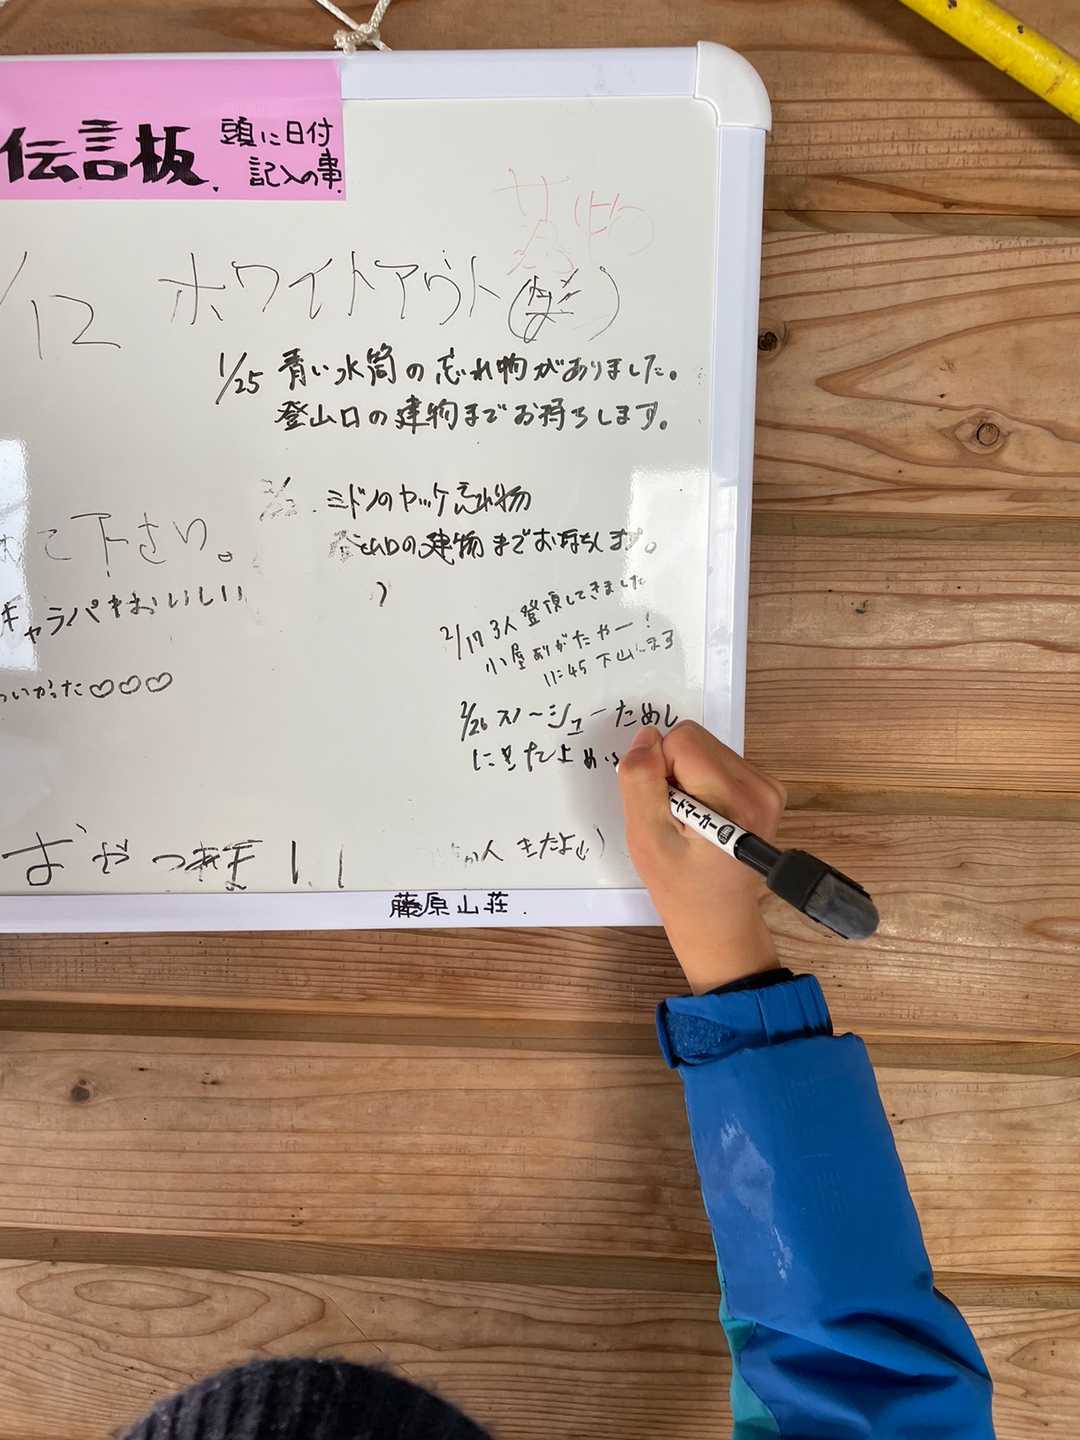 伝言板 頭に日付
記入の事
落物
/12 ホワイトアウト
1/25 青い水筒の忘れ物がありました。
登山口の建物までお持ちします。
ミドリのヤッケ忘れ物
登山口の建物までお持ちします。
て下さい。
キャラバもおいしい
2/17 3人登頂してきました
小屋ありがたやー!
11:45 下山します
いかった♡♡♡
2/26 スノーシューためし
にきたよ
きたよ
藤原山荘
ボードマーカー